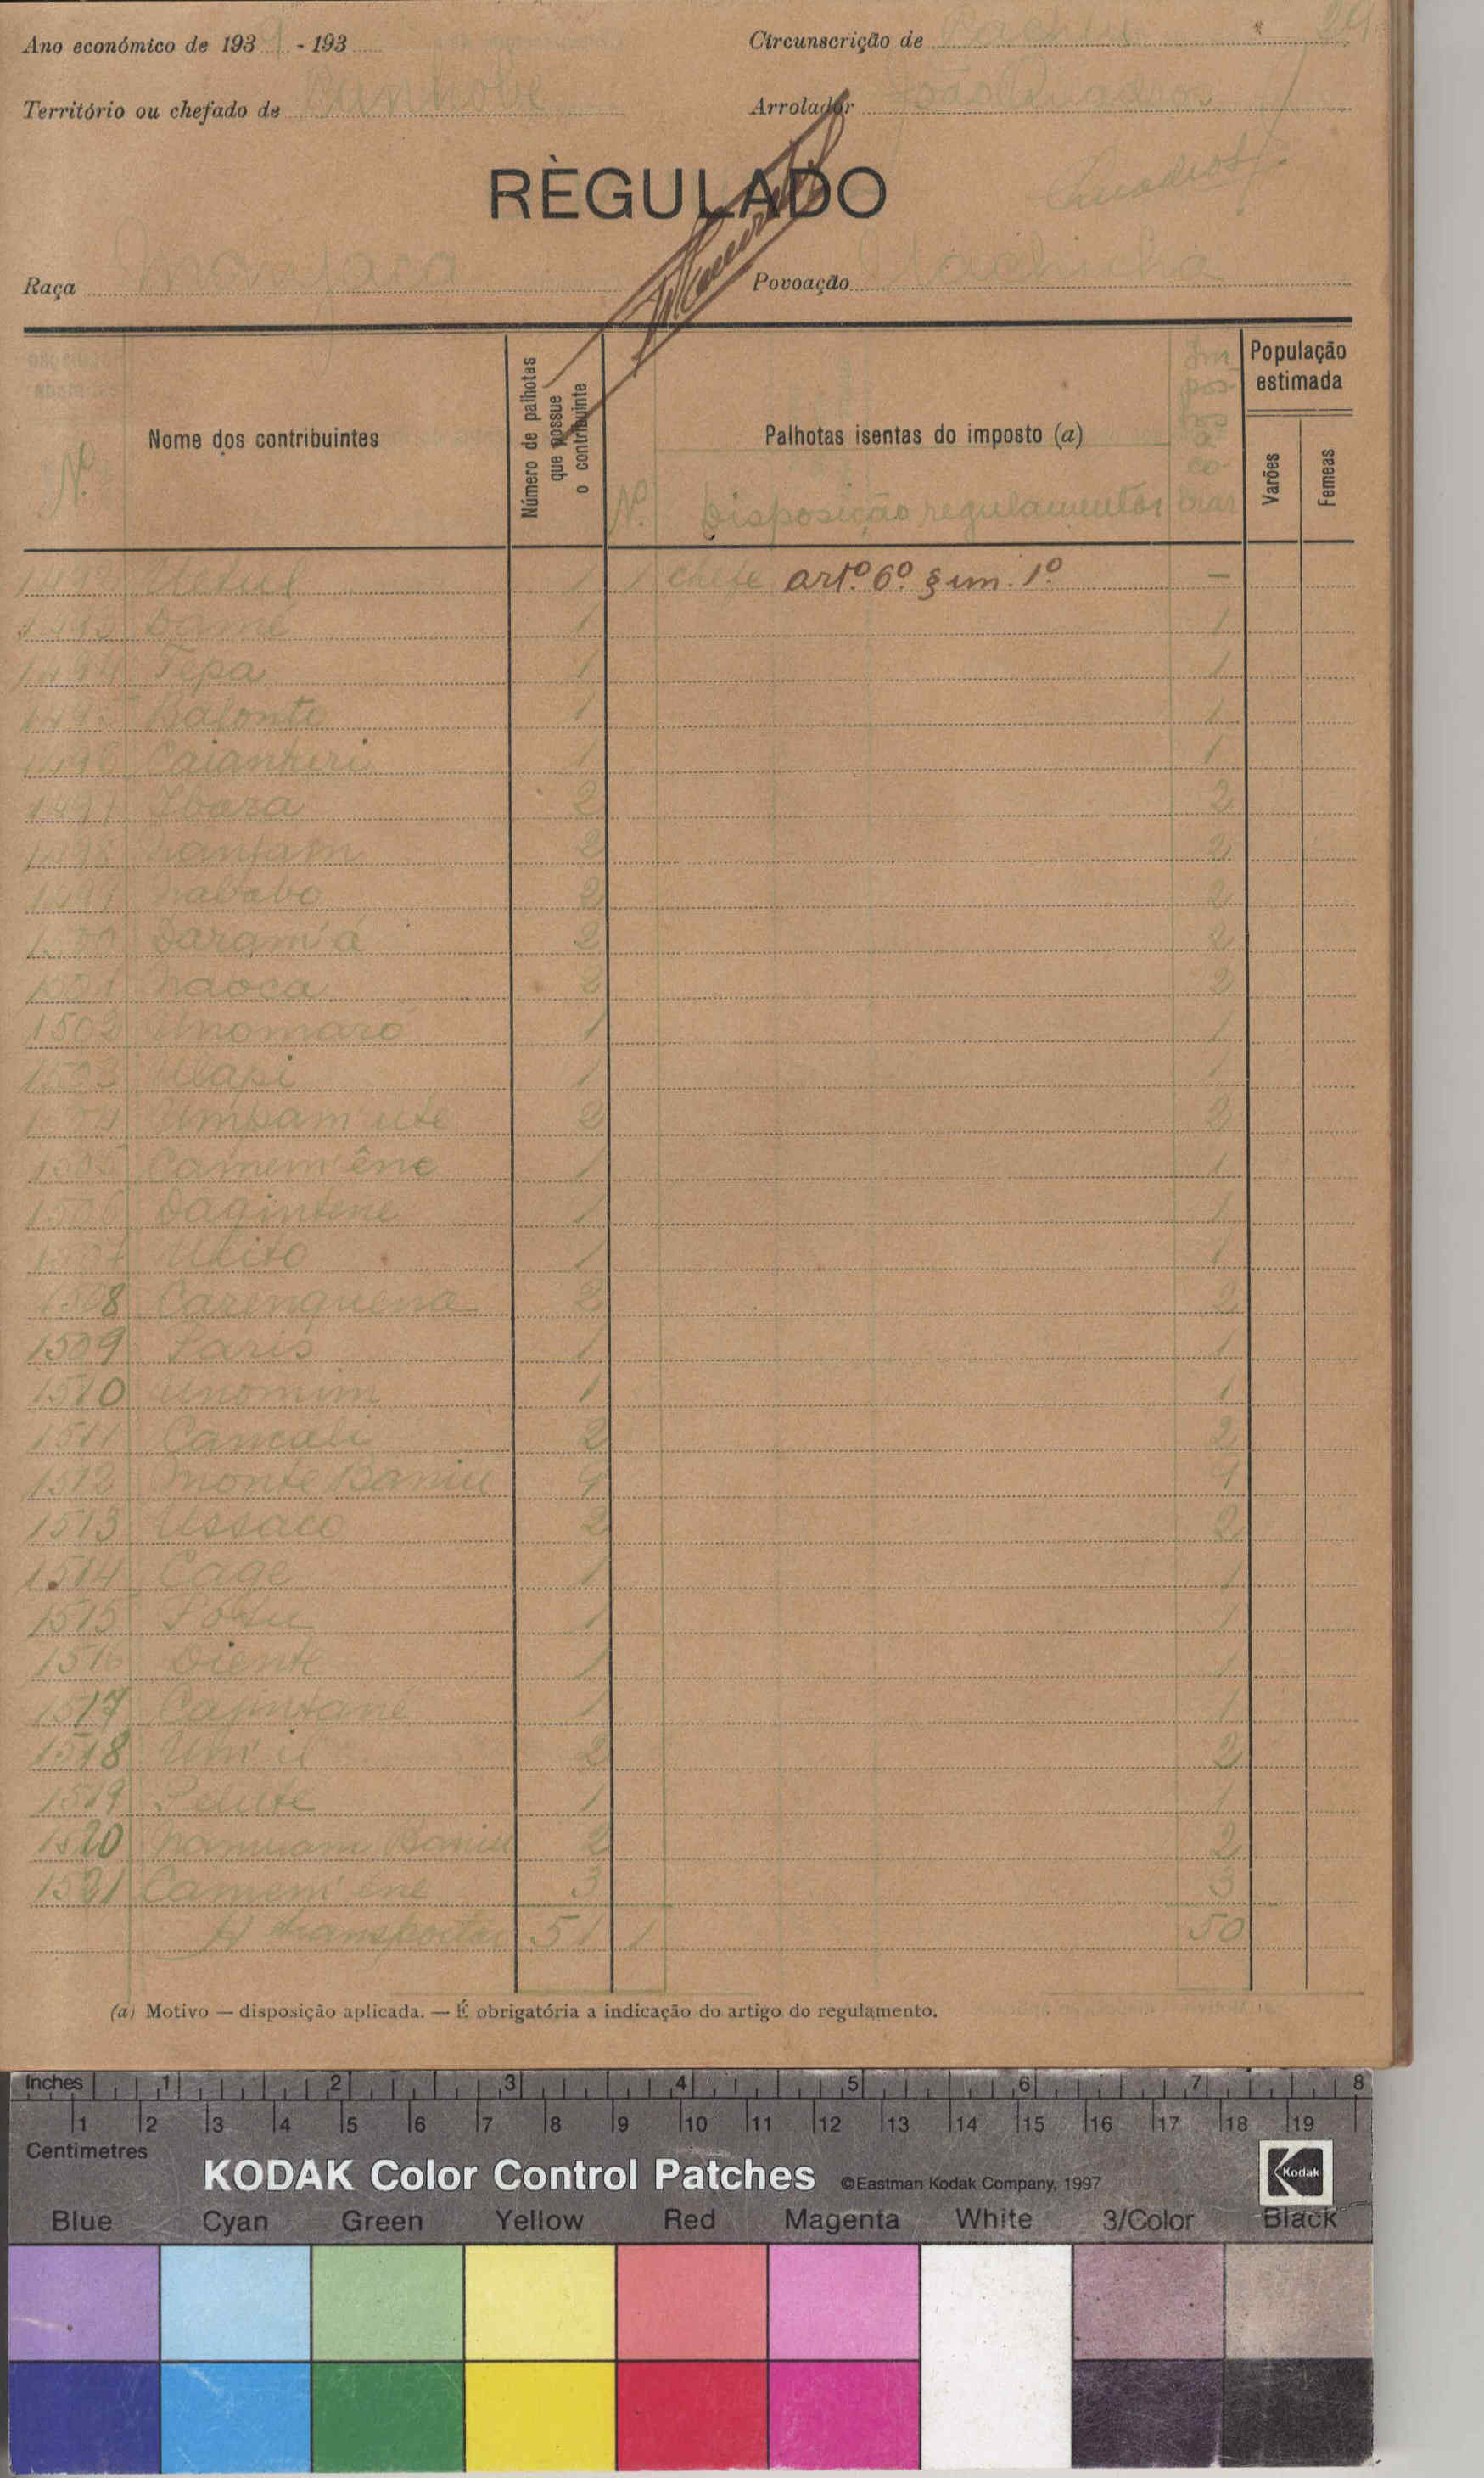 Ano económico de 193 - 193
Circunscrição de
24
Território ou chefado de
Arrolador João Quadros
RÈGULADO
Quadros
Raça Manojaca
Povoação
Nº
Nome dos contribuintes
Número de palhotas que possue o contribuinte
Palhotas isentas do imposto (a)
Nº
Disposição regulamentar
Impostos a cobrar
População estimada
Varões
Femeas
1 1 chefe artº 6º § um. 1º —
1493 Damé 1 1
1494 Tepa 1 1
1495 Bafonte 1 1
1496 Caianturi 1 1
1497 Ibaza 2 2
1498 Nanjam 2 2
1499 Nababo 2 2
1500 Daram'á 2 2
1501 Naoca 2 2
1502 Unomaró 1 1
1503 Ulapi 1 1
1504 Umpam'ute 2 2
1505 Camem'êne 1 1
1506 Dagintene 1 1
1507 1 1
1508 Carenquena 2 2
1509 Paris 1 1
1510 Unomim 1 1
1511 Cancali 2 2
1512 Monte Baniu 4 4
1513 Ussaco 2 2
1514 Cage 1 1
1515 1 1
1516 Diente 1 1
1517 1 1
1518 Um'il 2 2
1519 Pelute 1 1
1520 Baniu 2 2
1521 Camem'ene 3 3
A transportar 51 1 50
(a) Motivo — disposição aplicada. — É obrigatória a indicação do artigo do regulamento.
Inches 1 2 3 4 5 6 7 8
1 2 3 4 5 6 7 8 9 10 11 12 13 14 15 16 17 18 19
Centimetres
KODAK Color Control Patches ©Eastman Kodak Company, 1997 Kodak
Blue Cyan Green Yellow Red Magenta White 3/Color Black